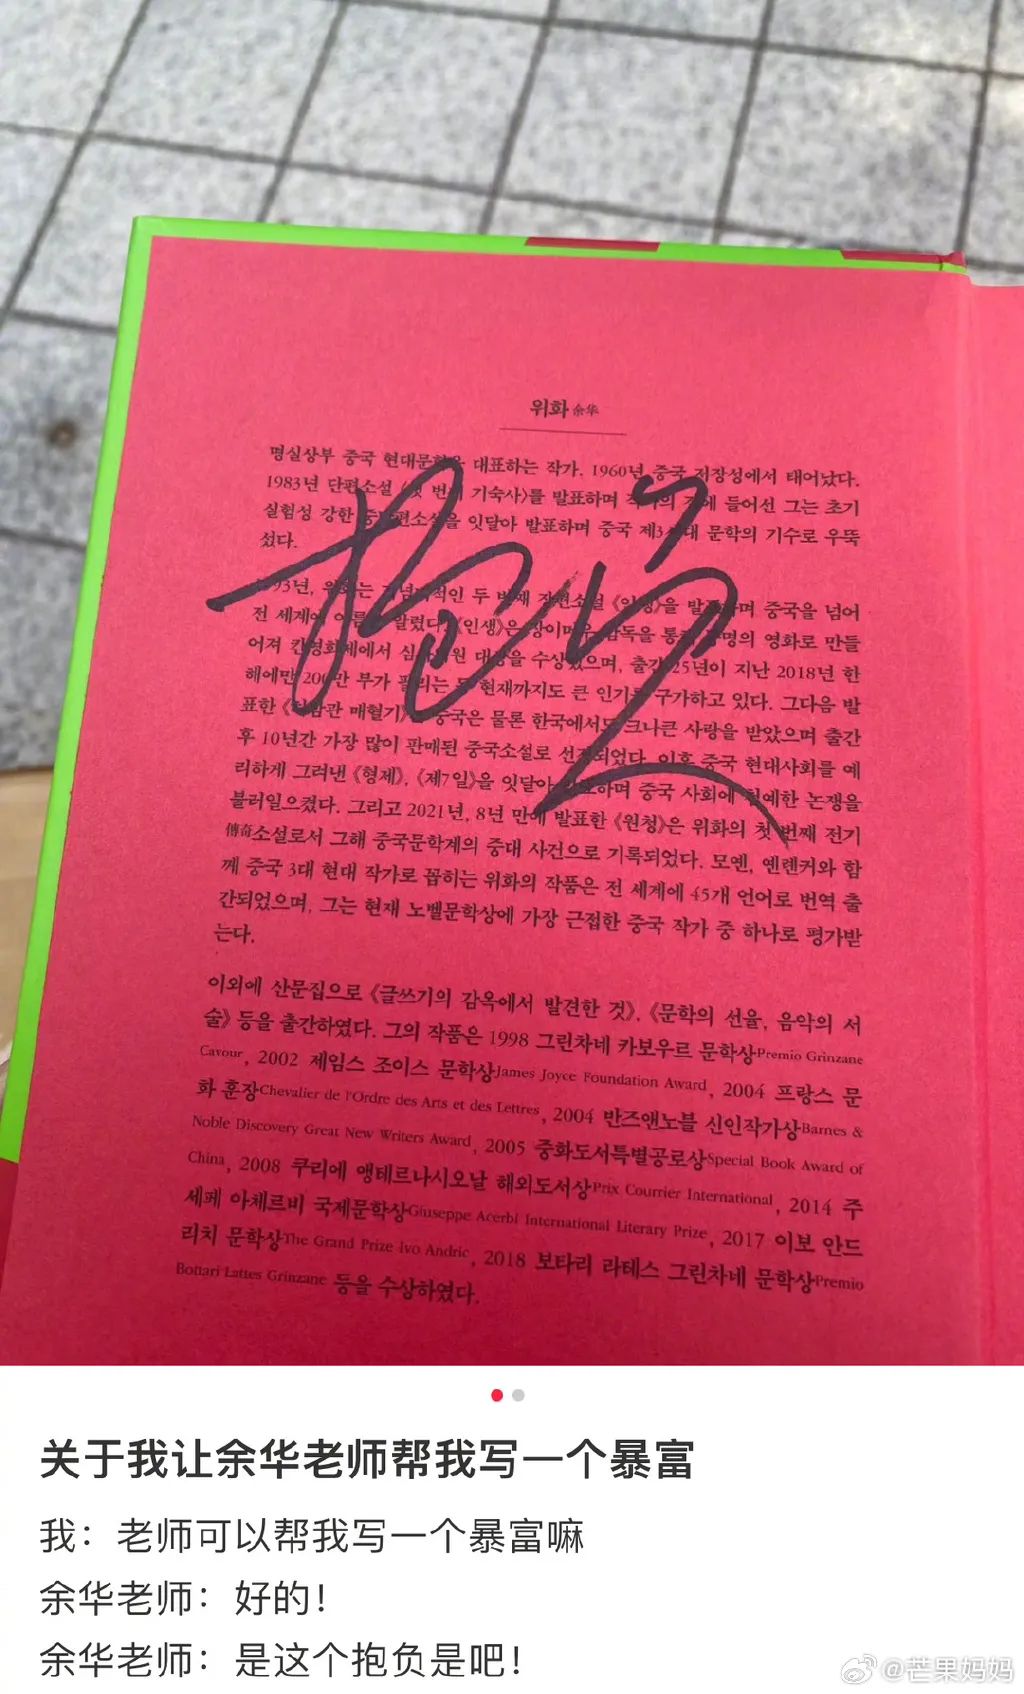 위화 余华
명실상부 중국 현대문학을 대표하는 작가. 1960년 중국 저장성에서 태어났다.
1983년 단편소설 〈첫 번째 기숙사〉를 발표하며 작가의 길에 들어선 그는 초기
실험성 강한 중단편소설을 잇달아 발표하며 중국 제3세대 문학의 기수로 우뚝
섰다.
1993년, 위화는 기념비적인 두 번째 장편소설 《인생》을 발표하며 중국을 넘어
전 세계에 이름을 알렸다. 《인생》은 장이머우 감독을 통해 동명의 영화로 만들
어져 칸영화제에서 심사위원 대상을 수상했으며, 출간 25년이 지난 2018년 한
해에만 200만 부가 팔리는 등 현재까지도 큰 인기를 구가하고 있다. 그다음 발
표한 《허삼관 매혈기》는 중국은 물론 한국에서도 크나큰 사랑을 받았으며 출간
후 10년간 가장 많이 판매된 중국소설로 선정되었다. 이후 중국 현대사회를 예
리하게 그려낸 《형제》, 《제7일》을 잇달아 발표하며 중국 사회에 첨예한 논쟁을
불러일으켰다. 그리고 2021년, 8년 만에 발표한 《원청》은 위화의 첫 번째 전기
傳奇소설로서 그해 중국문학계의 중대 사건으로 기록되었다. 모옌, 옌롄커와 함
께 중국 3대 현대 작가로 꼽히는 위화의 작품은 전 세계에 45개 언어로 번역 출
간되었으며, 그는 현재 노벨문학상에 가장 근접한 중국 작가 중 하나로 평가받
는다.
이외에 산문집으로 《글쓰기의 감옥에서 발견한 것》, 《문학의 선율, 음악의 서
술》 등을 출간하였다. 그의 작품은 1998 그린차네 카보우르 문학상Premio Grinzane
Cavour, 2002 제임스 조이스 문학상James Joyce Foundation Award, 2004 프랑스 문
화 훈장Chevalier de l'Ordre des Arts et des Lettres, 2004 반즈앤노블 신인작가상Barnes &
Noble Discovery Great New Writers Award, 2005 중화도서특별공로상Special Book Award of
China, 2008 쿠리에 앵테르나시오날 해외도서상Prix Courrier International, 2014 주
세페 아체르비 국제문학상Giuseppe Acerbi International Literary Prize, 2017 이보 안드
리치 문학상The Grand Prize Ivo Andric, 2018 보타리 라테스 그린차네 문학상Premio
Bottari Lattes Grinzane 등을 수상하였다.
抱负
关于我让余华老师帮我写一个暴富
我：老师可以帮我写一个暴富嘛
余华老师：好的！
余华老师：是这个抱负是吧！
@芒果妈妈